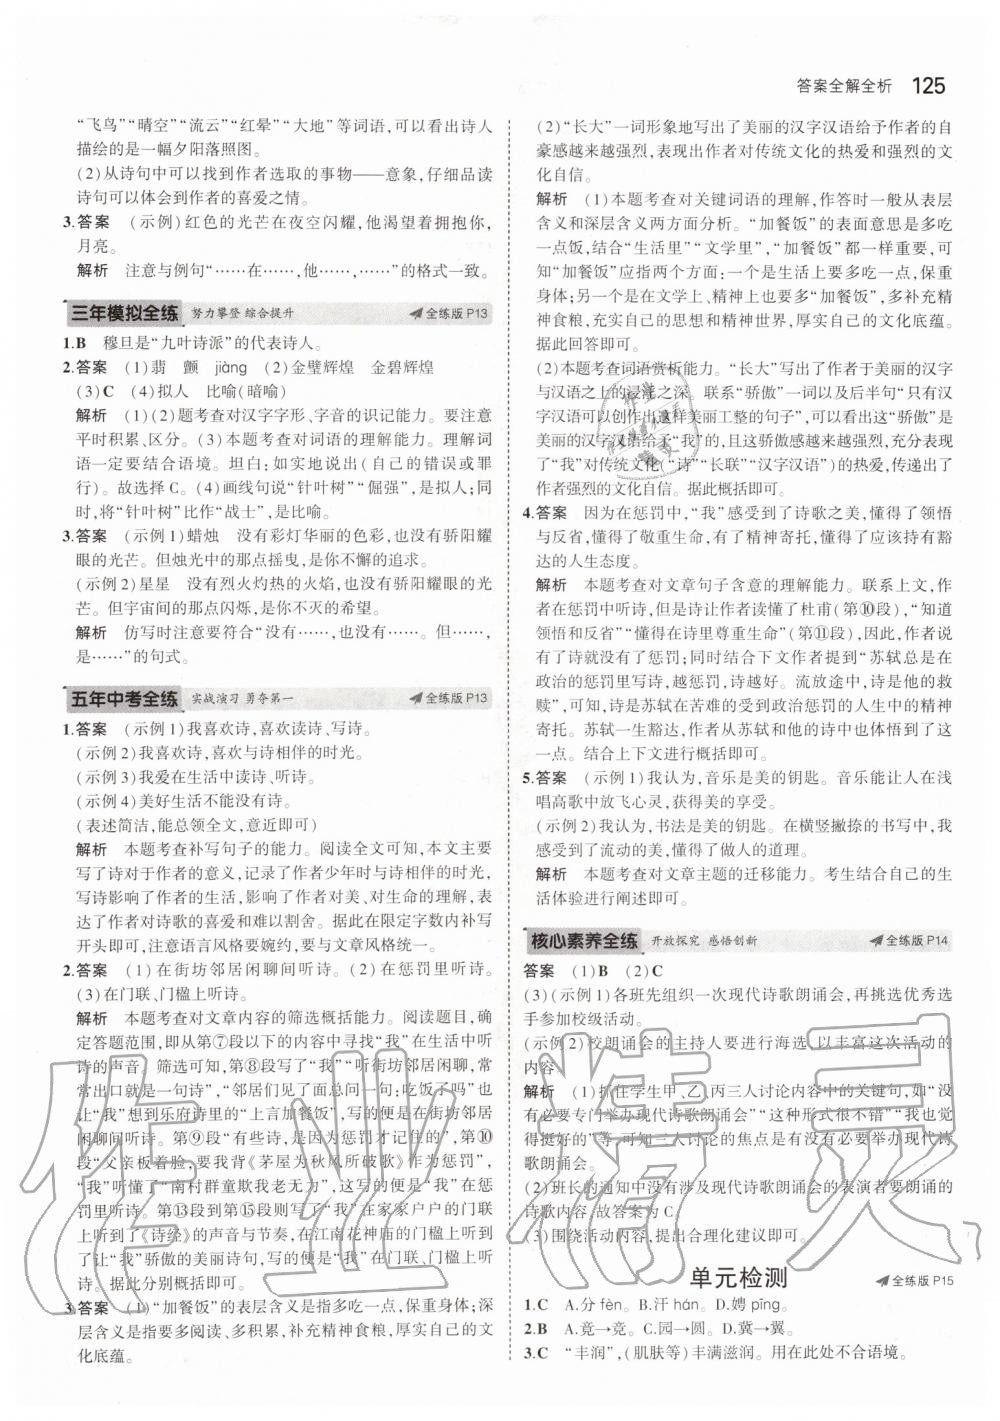 答案全解全析 125
“飞鸟”“晴空”“流云”“红晕”“大地”等词语,可以看出诗人
描绘的是一幅夕阳落照图。
(2)从诗句中可以找到作者选取的事物——意象,仔细品读
诗句可以体会到作者的喜爱之情。
3.答案 (示例)红色的光芒在夜空闪耀,他渴望着拥抱你,
月亮。
解析 注意与例句“……在……,他……,……”的格式一致。
三年模拟全练 努力攀登 综合提升 全练版 P13
1.B 穆旦是“九叶诗派”的代表诗人。
2.答案 (1)翡 颤 jiàng (2)金璧辉煌 金碧辉煌
(3)C (4)拟人 比喻(暗喻)
解析 (1)(2)题考查对汉字字形、字音的识记能力。要注意
平时积累、区分。(3)本题考查对词语的理解能力。理解词
语一定要结合语境。坦白:如实地说出(自己的错误或罪
行)。故选择 C。(4)画线句说“针叶树”“倔强”,是拟人;同
时,将“针叶树”比作“战士”,是比喻。
3.答案 (示例1)蜡烛 没有彩灯华丽的色彩,也没有骄阳耀
眼的光芒。但烛光中的那点摇曳,是你不懈的追求。
(示例2)星星 没有烈火灼热的火焰,也没有骄阳耀眼的光
芒。但宇宙间的那点闪烁,是你不灭的希望。
解析 仿写时注意要符合“没有……,也没有……。但……,
是……”的句式。
五年中考全练 实战演习 勇夺第一 全练版 P13
1.答案 (示例1)我喜欢诗,喜欢读诗、写诗。
(示例2)我喜欢诗,喜欢与诗相伴的时光。
(示例3)我爱在生活中读诗、听诗。
(示例4)美好生活不能没有诗。
(表述简洁,能总领全文,意近即可)
解析 本题考查补写句子的能力。阅读全文可知,本文主要
写了诗对于作者的意义,记录了作者少年时与诗相伴的时光,
写了诗影响了作者的生活,影响了作者对美、对生命的理解,表
达了作者对诗歌的喜爱和难以割舍。据此在限定字数内补写
开头即可,注意语言风格要婉约,要与文章风格统一。
2.答案 (1)在街坊邻居闲聊间听诗。 (2)在惩罚里听诗。
(3)在门联、门楹上听诗。
解析 本题考查对文章内容的筛选概括能力。阅读题目,确
定答题范围,即从第⑦段以下的内容中寻找“我”在生活中听
诗的声音。筛选可知,第⑧段写了“我”“听街坊邻居闲聊,常
常出口就是一句诗”,“邻居们见了面总问一句:吃饭了吗”也
让“我”想到乐府诗里的“上言加餐饭”,写的便是在街坊邻居
闲聊间听诗。第⑨段“有些诗,是因为惩罚才记住的”,第⑩
段“父亲板着脸,要我背《茅屋为秋风所破歌》作为惩罚”,
“我”听到了“南村群童欺我老无力”,这写的便是“我”在惩
罚里听诗。第⑬段到第⑮段则写了“我”在家家户户的门联
上听到了《诗经》的声音与节奏,在江南花神庙的门楹上听到
了让“我”骄傲的美丽诗句,写的便是“我”在门联、门楹上听
诗。据此分别概括即可。
3.答案 (1)“加餐饭”的表层含义是指多吃一点,保重身体;深
层含义是指要多阅读、多积累,补充精神食粮,厚实自己的文
化底蕴。
(2)“长大”一词形象地写出了美丽的汉字汉语给予作者的自
豪感越来越强烈,表现出作者对传统文化的热爱和强烈的文
化自信。
解析 (1)本题考查对关键词语的理解,作答时一般从表层
含义和深层含义两方面分析。“加餐饭”的表面意思是多吃
一点饭,结合“生活里”“文学里”,“加餐饭”都一样重要,可
知“加餐饭”应指两方面:一个是生活上要多吃一点,保重
身体;另一方面是文学上、精神上也要“加餐饭”,多补充精神
食粮,充实自己的思想和精神世界,厚实自己的文化底蕴。
据此回答即可。
(2)本题考查词语赏析能力。“长大”写出了作者于美丽的汉字
与汉语之上的浸淫之深。联系“骄傲”一词以及后半句“只有汉
字汉语可以创作出这样美丽工整的句子”,可以看出,这“骄傲”是
美丽的汉字汉语给予“我”的,且这骄傲感越来越强烈,充分表现
了“我”对传统文化(“诗”“长联”“汉字汉语”)的热爱,传递出了
作者强烈的文化自信。据此概括即可。
4.答案 因为在惩罚中,“我”感受到了诗歌之美,懂得了领悟
与反省,懂得了敬重生命,有了精神寄托,懂得了应该持有豁
达的人生态度。
解析 本题考查对文章句子含意的理解能力。联系上文,作
者在惩罚中听诗,但是诗让作者读懂了杜甫(第⑩段),“知道
领悟和反省”“懂得在诗里尊重生命”(第⑪段),因此,作者说
有诗的地方就没有了惩罚;同时结合下文作者提到“苏轼是在
政治的惩罚里写诗,越惩罚,诗越好。流放途中,诗是他的救
赎”,可知,诗是苏轼在苦难的受到政治惩罚的人生中的精神
寄托。苏轼一生豁达,面对惩罚,作者从苏轼和他的诗中也有
了这一点。结合上下文进行概括即可。
5.答案 (示例1)我认为,音乐是美的钥匙。音乐能让人在浅
唱高歌中放飞心灵,获得美的享受。
(示例2)我认为,书法是美的钥匙。在横竖撇捺的书写中,我
感受到了流动的美,懂得了做人的道理。
解析 本题考查对文章主题的迁移能力。考生结合自己的生
活体验进行阐述即可。
核心素养全练 开放探究 感悟创新 全练版 P14
答案 (1)B (2)C
(3)(示例1)各班先组织一次现代诗歌朗诵会,再挑选优秀选
手参加校级活动。
(示例2)校朗诵会的主持人要进行海选,以丰富这次活动的
内容。
解析 (1)抓住学生甲、乙、丙三人讨论内容中的关键句,如“没
有必要专门举办现代诗歌朗诵会”“这种形式很不错”“我也觉
得挺好的”等,可知三人讨论的焦点是有没有必要举办现代诗
歌朗诵会。
(2)班长的通知中没有涉及现代诗歌朗诵会的表演者要朗诵的
诗歌内容,故答案为 C。
(3)围绕活动内容,提出合理化建议即可。
单元检测 全练版 P15
1.C A.分 fèn。B.汗 hán。D.娉 pīng。
2.B A.竞→竟。C.园→圆。D.冀→翼。
3.C “丰润”,(肌肤等)丰满滋润。用在此处不合语境。
作业精灵